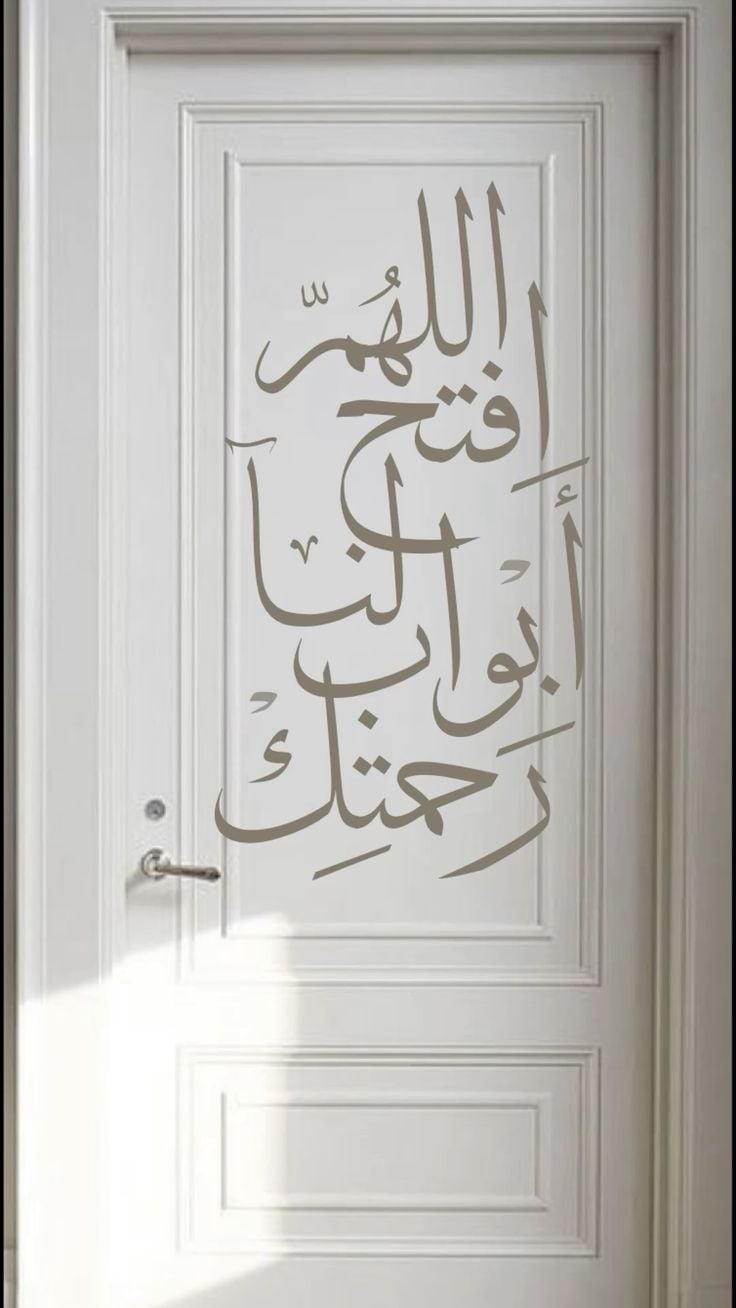 اللهُمّ
اِفتح
لنا أبواب
رحمتِك